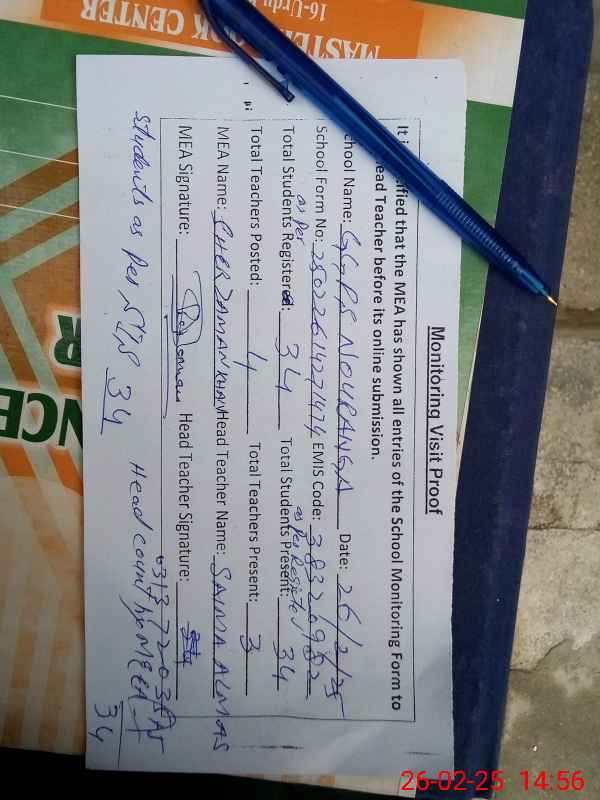 MASTER BOOK CENTER
16-Urdu
Monitoring Visit Proof
It is certified that the MEA has shown all entries of the School Monitoring Form to
Head Teacher before its online submission.
School Name: GGPS NOURANGA Date: 26/2/25
School Form No: EMIS Code: 38320962
as per as Per Register
Total Students Registered: 34 Total Students Present: 34
Total Teachers Posted: 4 Total Teachers Present: 3
MEA Name: SHER ZAMAN KHAN Head Teacher Name: SAIMA ALMAS
MEA Signature: Head Teacher Signature:
Students as Per SIS 34 Head count by MEA 34
26-02-25 14:56